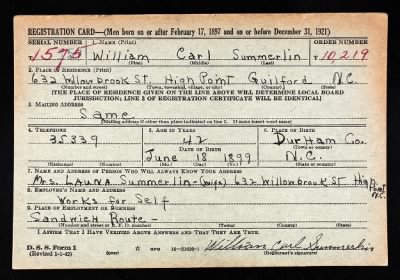 REGISTRATION CARD—(Men born on or after February 17, 1897 and on or before December 31, 1921)
SERIAL NUMBER 1. NAME (Print) ORDER NUMBER
T 1575 William Carl Summerlin T 10,219
(First) (Middle) (Last)
2. PLACE OF RESIDENCE (Print)
632 Willowbrook St. High Point Guilford N.C.
(Number and street) (Town, township, village, or city) (County) (State)
[THE PLACE OF RESIDENCE GIVEN ON THE LINE ABOVE WILL DETERMINE LOCAL BOARD
JURISDICTION; LINE 2 OF REGISTRATION CERTIFICATE WILL BE IDENTICAL]
3. MAILING ADDRESS
Same
[Mailing address if other than place indicated on line 2. If same insert word same]
4. TELEPHONE 5. AGE IN YEARS 6. PLACE OF BIRTH
35339 42 Durham Co.
DATE OF BIRTH (Town or county)
June 18 1899 N.C.
(Exchange) (Number) (Mo.) (Day) (Yr.) (State or country)
7. NAME AND ADDRESS OF PERSON WHO WILL ALWAYS KNOW YOUR ADDRESS
Mrs. Launa Summerlin-(wife) 632 Willowbrook St High Point N.C.
8. EMPLOYER'S NAME AND ADDRESS
Works for Self
9. PLACE OF EMPLOYMENT OR BUSINESS
Sandwich Route -
(Number and street or R. F. D. number) (Town) (County) (State)
I AFFIRM THAT I HAVE VERIFIED ABOVE ANSWERS AND THAT THEY ARE TRUE.
D. S. S. Form 1
(Revised 1-1-42) GPO 16-21630-1 William Carl Summerlin
(Registrant's signature)